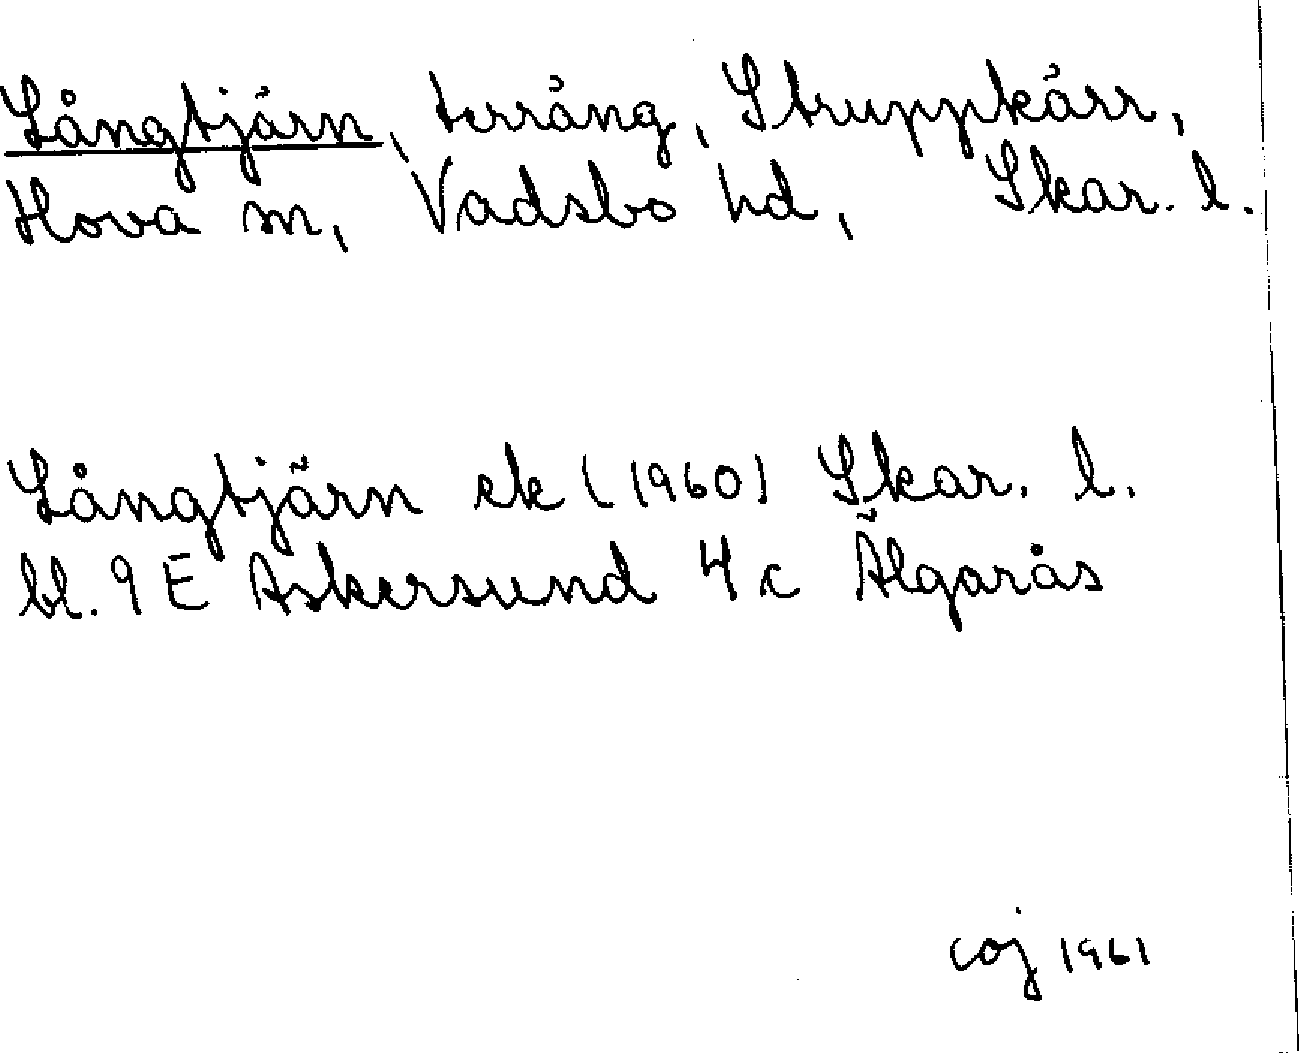 Långtjärn, terräng, Struppkärr,
Hova sn, Vadsbo hd, Skar. l.
Långtjärn ek (1960) Skar. l.
bl. 9 E Askersund 4 c Älgarås
coj 1961